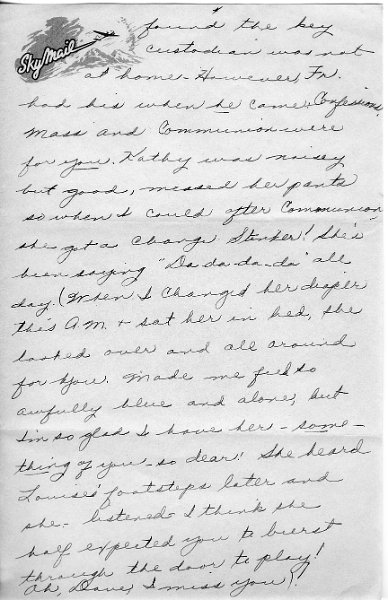 Sky Mail
found the key
custodian was not
at home - However, Fr.
had his when he came. Confessions,
Mass and Communion were
for you. Kathy was noisey
but good, messed her pants
so when I could after Communion
she got a change Stinker! She's
been saying "Da da-da-da" all
day. (When I changed her diaper
this A.M. + sat her in bed, she
looked over and all around
for you. Made me feel so
awfully blue and alone, but
I'm so glad I have her - some-
thing of you - so dear! She heard
Louise's footsteps later and
she - listened - I think she
half expected you to burst
through the door to play!
Oh, Dave, I miss you)!